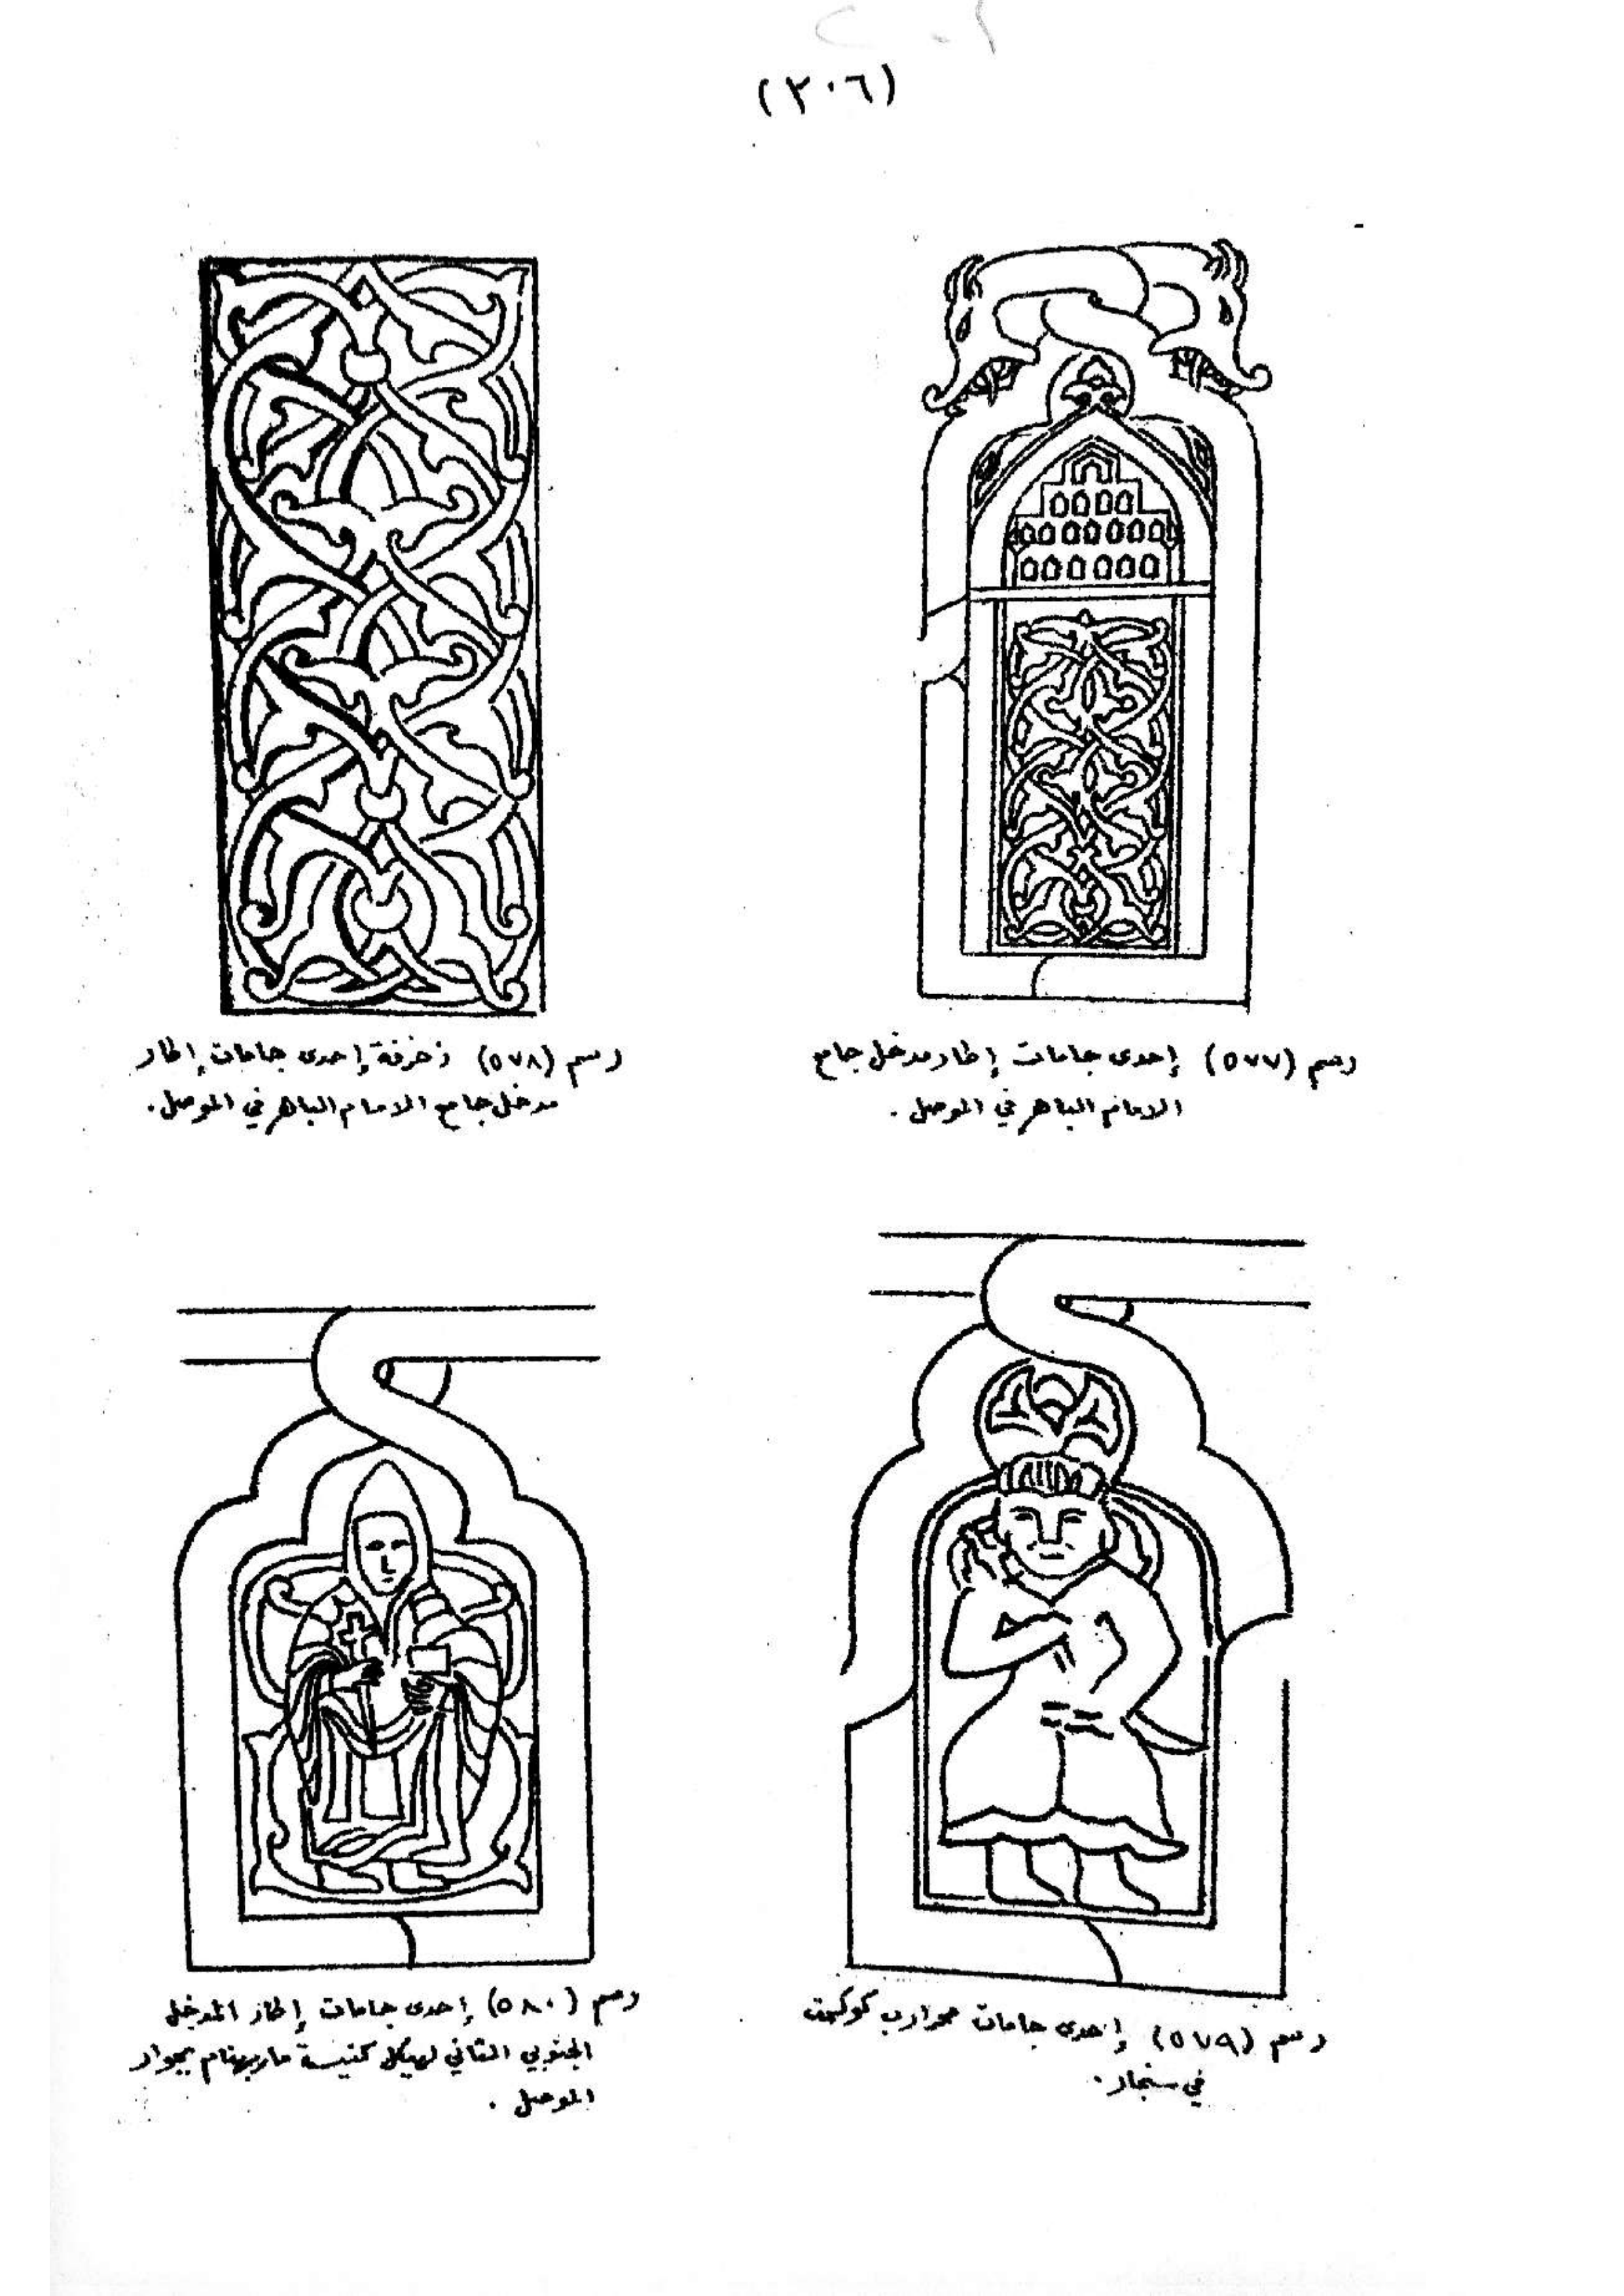 (٢٠٦)
رسم (٥٧٧) إحدى جامات إطار مدخل جامع
الامام الباهر في الموصل .
رسم (٥٧٨) زخرفة إحدى جامات إطار
مدخل جامع الامام الباهر في الموصل .
رسم (٥٧٩) إحدى جامات محراب كوكمت
في سنجار .
رسم (٥٨٠) إحدى جامات إطار المدخل
الجنوبي الثاني لهيكل كنيسة ماربهنام بجوار
الموصل .